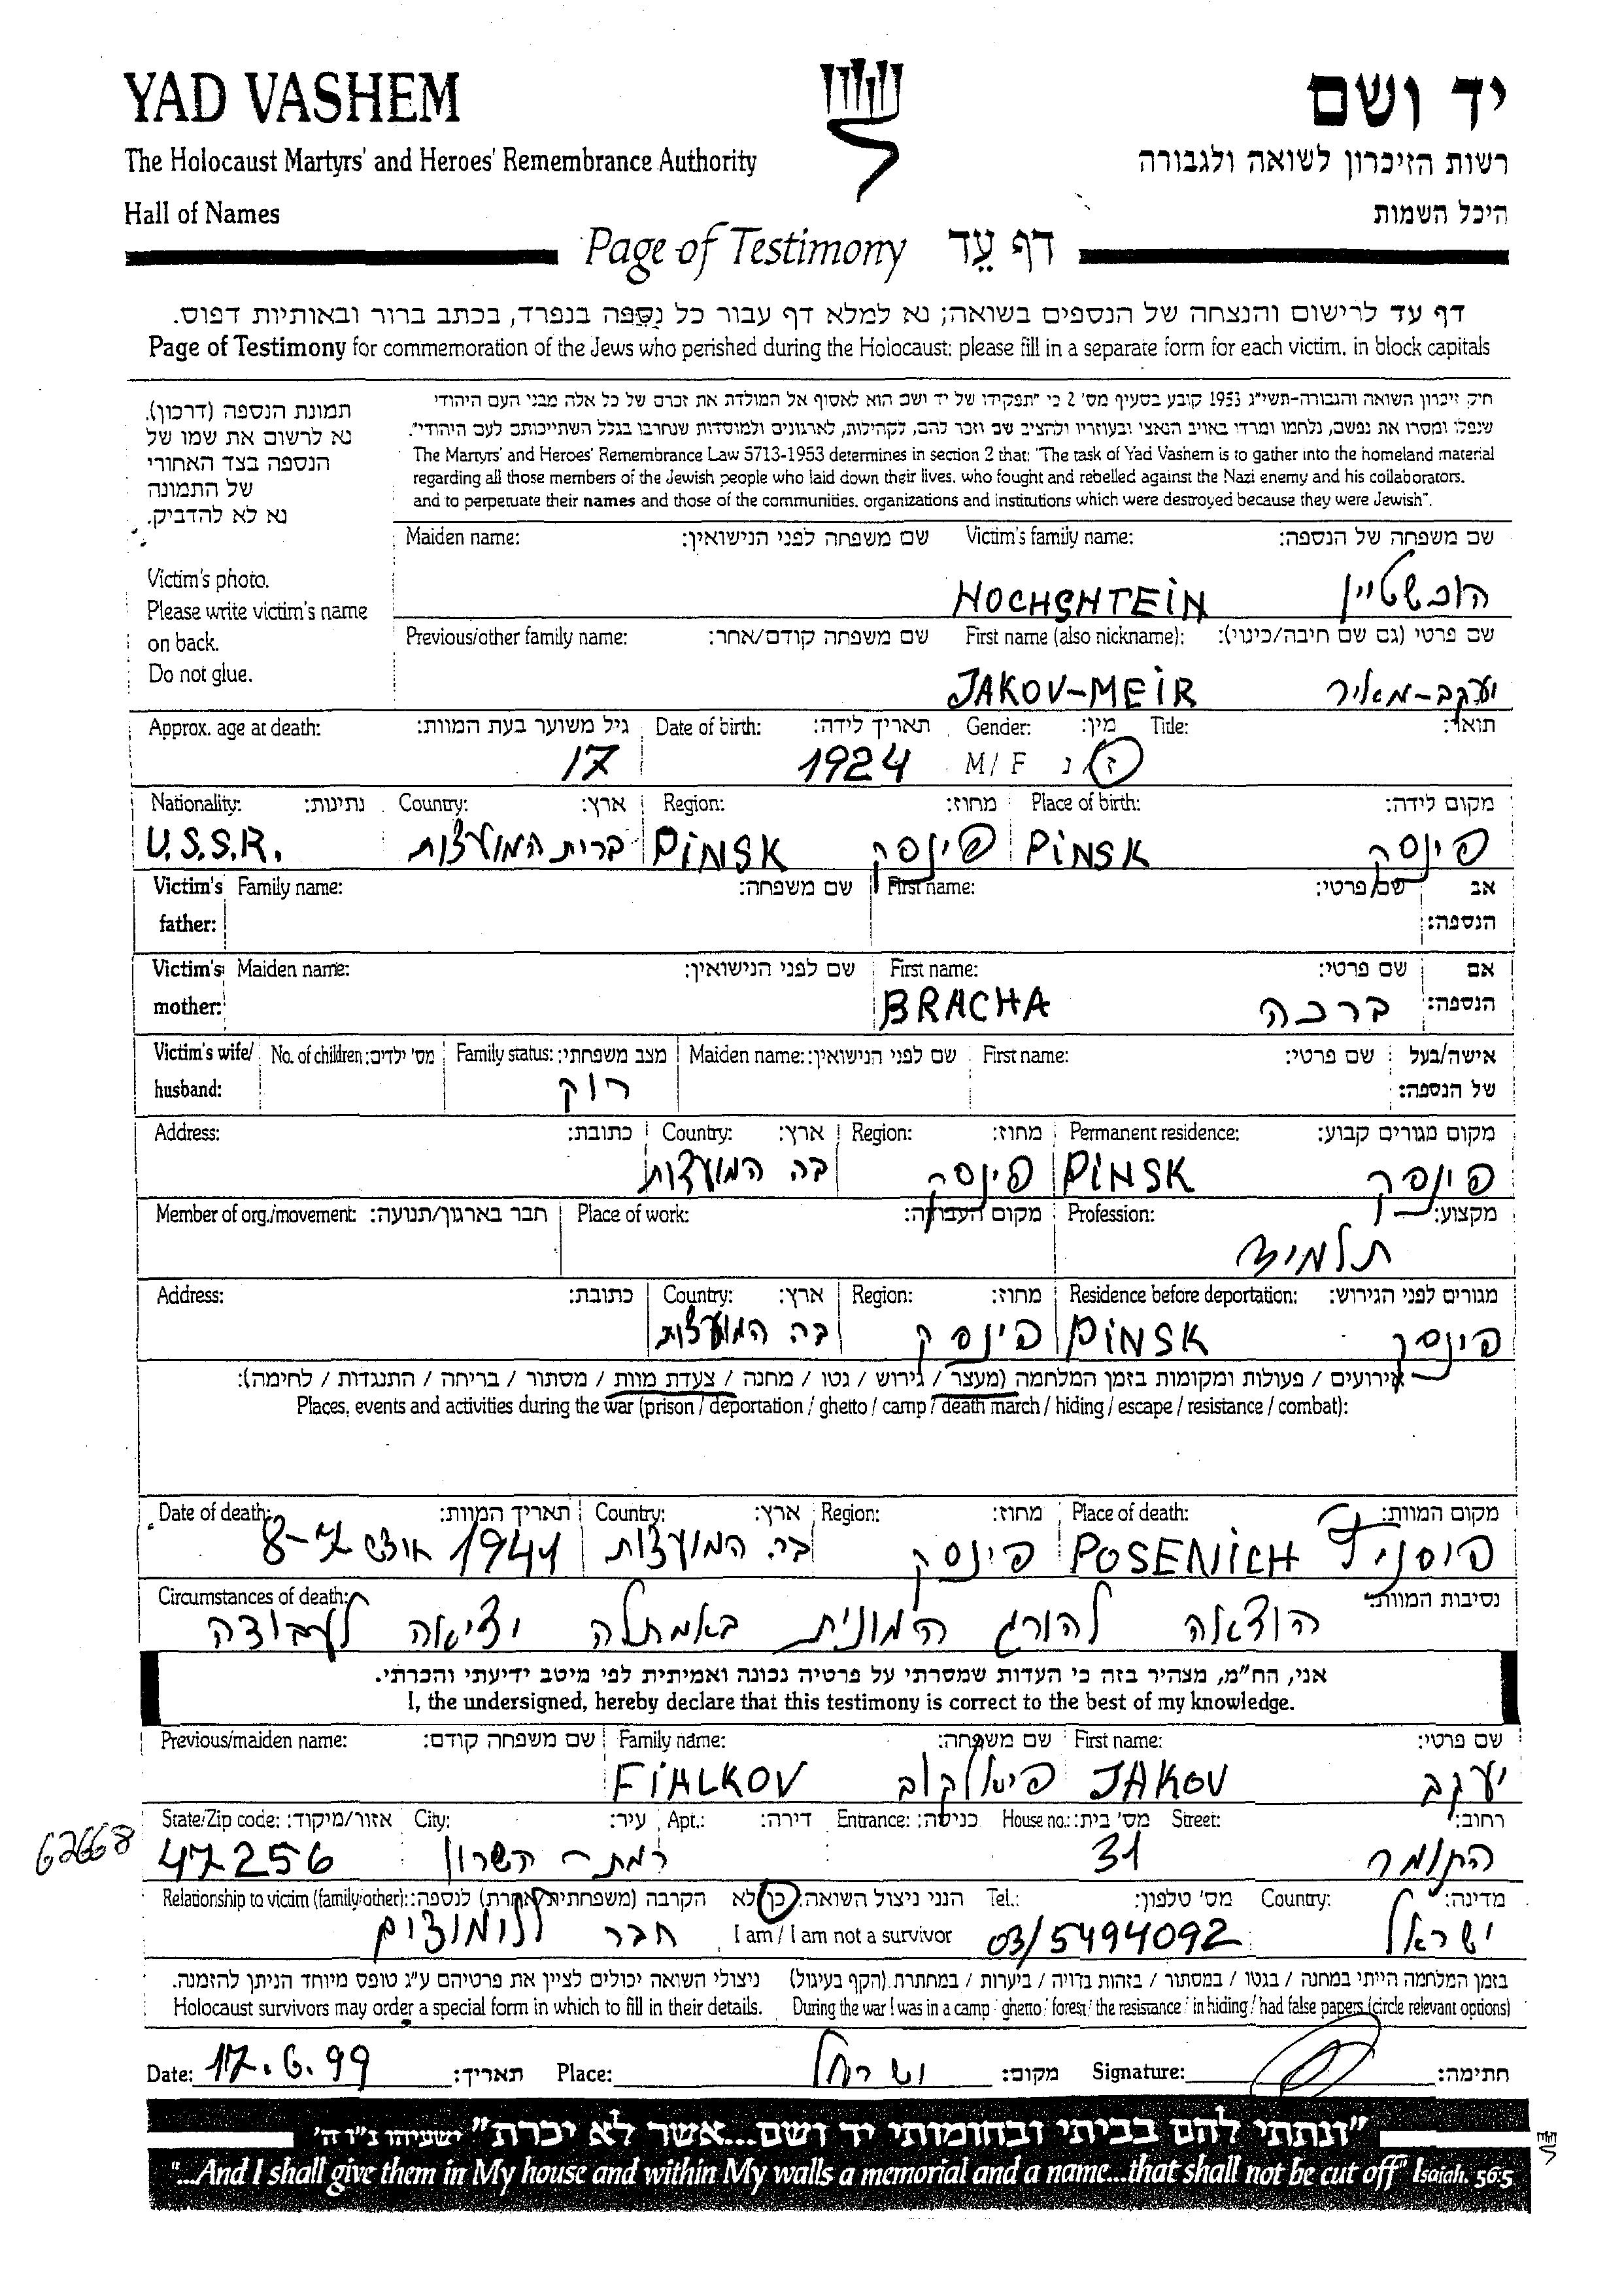 YAD VASHEM יד ושם
The Holocaust Martyrs' and Heroes' Remembrance Authority רשות הזיכרון לשואה ולגבורה
Hall of Names היכל השמות
Page of Testimony דף עֵד
דף עד לרישום והנצחה של הנספים בשואה; נא למלא דף עבור כל נִסְפֶּה בנפרד, בכתב ברור ובאותיות דפוס.
Page of Testimony for commemoration of the Jews who perished during the Holocaust: please fill in a separate form for each victim. in block capitals
תמונת הנספה (דרכון).
נא לרשום את שמו של
הנספה בצד האחורי
של התמונה
נא לא להדביק.
Victim's photo.
Please write victim's name
on back.
Do not glue.
חוק זיכרון השואה והגבורה-תשי"ג 1953 קובע בסעיף מס' 2 כי "תפקידו של יד ושם הוא לאסוף אל המולדת את זכרם של כל אלה מבני העם היהודי
שנפלו ומסרו את נפשם, נלחמו ומרדו באויב הנאצי ובעוזריו ולהציב שם וזכר להם, לקהילות, לארגונים ולמוסדות שנחרבו בגלל השתייכותם לעם היהודי".
The Martyrs' and Heroes' Remembrance Law 5713-1953 determines in section 2 that: "The task of Yad Vashem is to gather into the homeland material
regarding all those members of the Jewish people who laid down their lives. who fought and rebelled against the Nazi enemy and his collaborators.
and to perpetuate their names and those of the communities. organizations and institutions which were destroyed because they were Jewish".
Maiden name: שם משפחה לפני הנישואין: Victim's family name: שם משפחה של הנספה:
HOCHSHTEIN הוכשטיין
Previous/other family name: שם משפחה קודם/אחר: First name (also nickname): שם פרטי (גם שם חיבה/כינוי):
JAKOV-MEIR יעקב-מאיר
Approx. age at death: גיל משוער בעת המוות: Date of birth: תאריך לידה: Gender: מין: Title: תואר:
17 1924 M/F ז/נ
Nationality: נתינות: Country: ארץ: Region: מחוז: Place of birth: מקום לידה:
U.S.S.R. ברית המועצות PINSK פינסק PINSK פינסק
Victim's father: Family name: שם משפחה: First name: שם פרטי: אב הנספה:
Victim's mother: Maiden name: שם לפני הנישואין: First name: שם פרטי: אם הנספה:
BRACHA ברכה
Victim's wife/ husband: No. of children: מס' ילדים: Family status: מצב משפחתי: Maiden name: שם לפני הנישואין: First name: שם פרטי: אישה/בעל של הנספה:
רווק
Address: כתובת: Country: ארץ: Region: מחוז: Permanent residence: מקום מגורים קבוע:
בה המועצות פינסק PINSK פינסק
Member of org./movement: חבר בארגון/תנועה: Place of work: מקום העבודה: Profession: מקצוע:
תלמיד
Address: כתובת: Country: ארץ: Region: מחוז: Residence before deportation: מגורים לפני הגירוש:
בה המועצות פינסק PINSK פינסק
אירועים / פעולות ומקומות בזמן המלחמה (מעצר / גירוש / גטו / מחנה / צעדת מוות / מסתור / בריחה / התנגדות / לחימה):
Places, events and activities during the war (prison / deportation / ghetto / camp / death march / hiding / escape / resistance / combat):
Date of death: תאריך המוות: Country: ארץ: Region: מחוז: Place of death: מקום המוות:
1941 7-8 בה. המועצות פינסק POSENICH
Circumstances of death: נסיבות המוות:
הוצאה להורג המונית באמתלה יציאה לעבודה
אני, הח"מ, מצהיר בזה כי העדות שמסרתי על פרטיה נכונה ואמיתית לפי מיטב ידיעתי והכרתי.
I, the undersigned, hereby declare that this testimony is correct to the best of my knowledge.
Previous/maiden name: שם משפחה קודם: Family name: שם משפחה: First name: שם פרטי:
FIALKOV פיאלקוב JAKOV יעקב
State/Zip code: אזור/מיקוד: City: עיר: Apt.: דירה: Entrance: כניסה: House no.: מס' בית: Street: רחוב:
62668 47256 רמת-השרון 31 התומר
Relationship to victim (family/other): הקרבה (משפחתית/אחרת) לנספה: הנני ניצול השואה: כן/לא Tel.: מס' טלפון: Country: מדינה:
חבר ללימודים I am / I am not a survivor 03/5494092 ישראל
בזמן המלחמה הייתי במחנה / בגטו / במסתור / בזהות בדויה / ביערות / במחתרת (הקף בעיגול) ניצולי השואה יכולים לציין את פרטיהם ע"ג טופס מיוחד הניתן להזמנה.
Holocaust survivors may order a special form in which to fill in their details. During the war I was in a camp / ghetto / forest / the resistance / in hiding / had false papers (circle relevant options)
Date: 17.6.99 תאריך: Place: ישראל מקום: Signature: חתימה:
"ונתתי להם בביתי ובחומותי יד ושם...אשר לא יכרת" ישעיהו נ"ו ה'
"...And I shall give them in My house and within My walls a memorial and a name...that shall not be cut off" Isaiah. 56:5